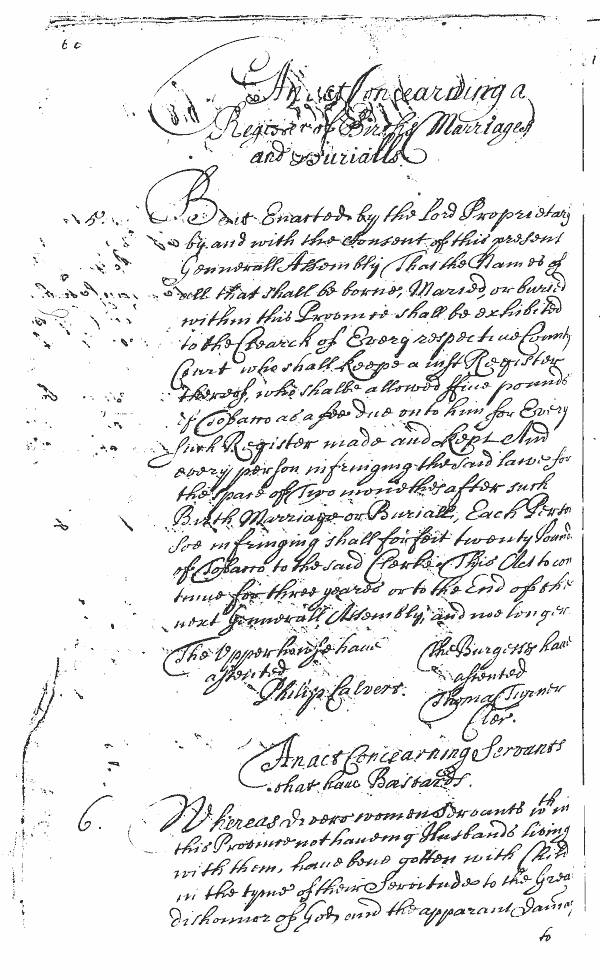 60
An act Concearning a
Register of Births Marriages
and Burialls
5. Be it Enacted by the Lord Proprietary
by and with the Consent of this present
Gennerall Assembly That the Names of
all that shall be borne, Maried, or buried
within this Province shall be exhibited
to the Clearck of Every respective County
Court who shall keepe a iust Register
thereof, who shalbe allowed ffiue pounds
of Tobacco as a fee due onto him for Every
such Register made and kept And
every person infringing the said lawe for
the space of Two monethes after such
Birth Marriage or Buriall, Each Perso
soe infringing shall forfeit twenty pound
of Tobacco to the said Clerke This Act to con
tinue for three yeares or to the End of the
next Gennerall Assembly and noe longer
The Vpper howse haue
assented
Philip Calvert.
The Burgesses haue
assented
Thomas Turner
Cler.
An act Concearning Servants
that haue Bastards.
6. Whereas divers women Servants wth in
this Province not haueing Husbands living
with them, haue bene gotten with Child
in the tyme of their Servitude to the Grea
dishonnor of God and the apparant Damag
to